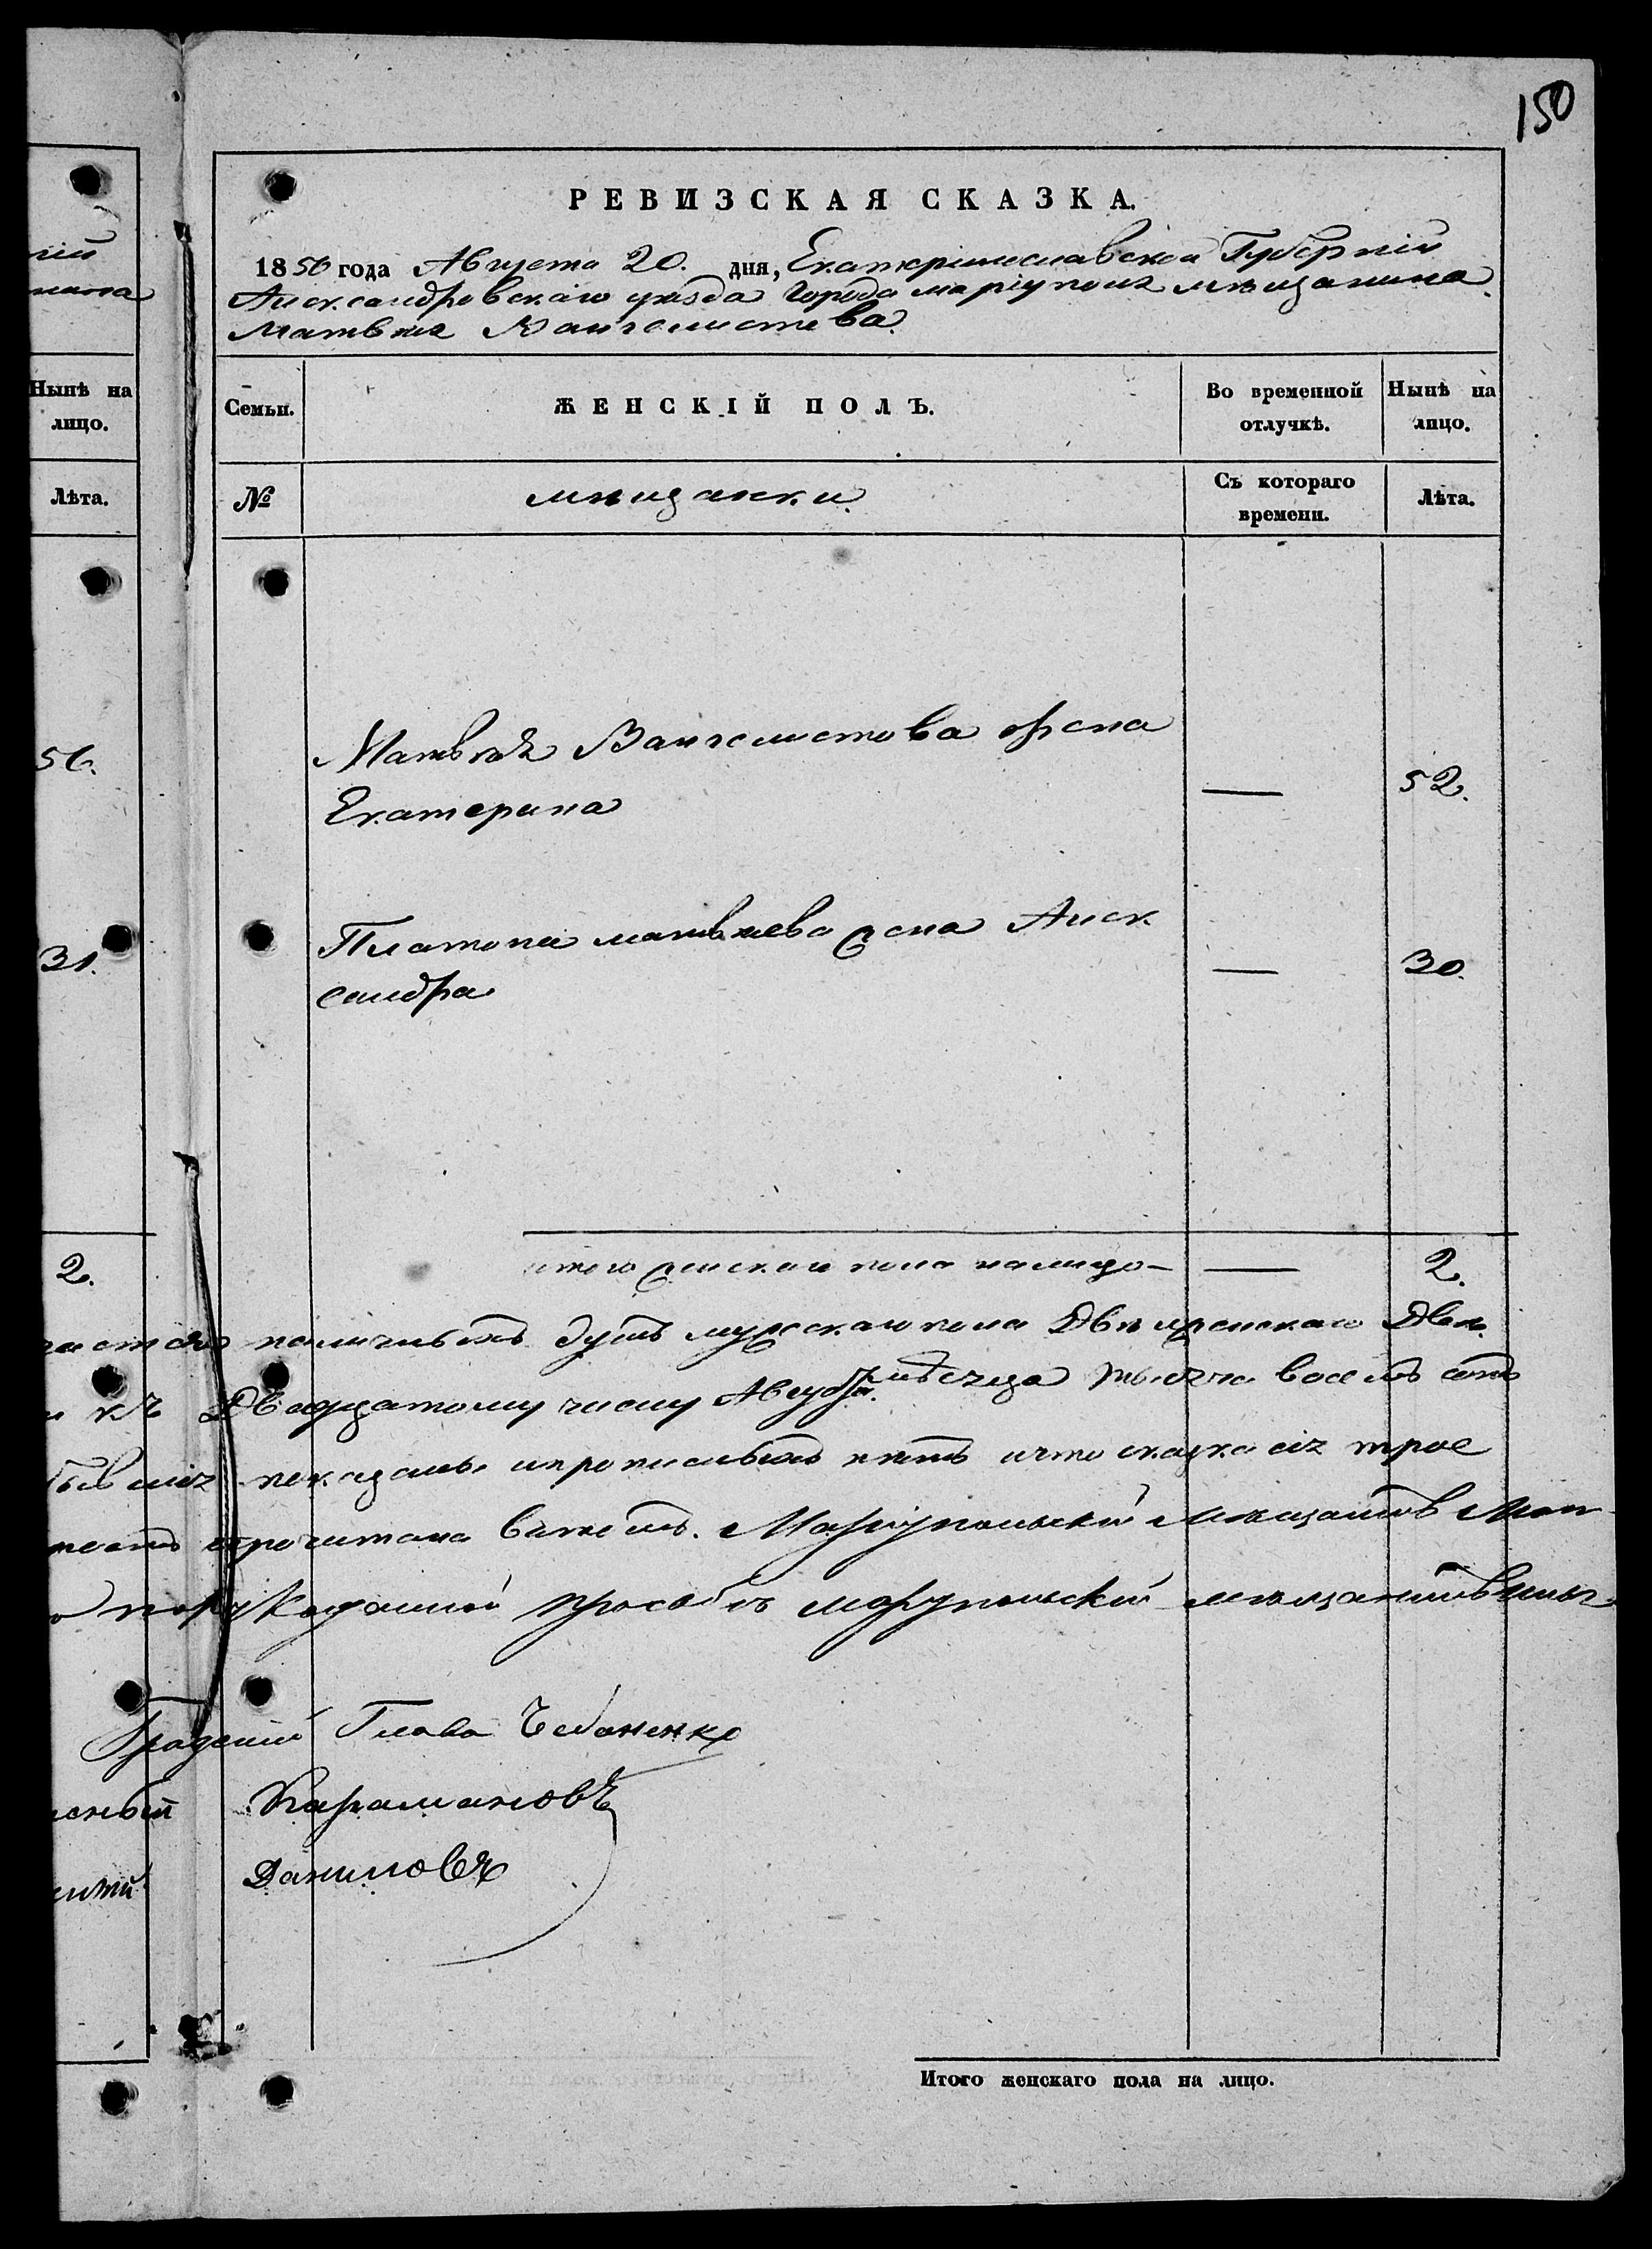 150
РЕВИЗСКАЯ СКАЗКА.
1850 года Августа 20. дня, Екатеринославской Губерніи
Александровскаго уѣзда Города Маріуполя мѣщанина
Матвѣя Вангелистова
Нынѣ на лицо.
Семьи.
ЖЕНСКІЙ ПОЛЪ.
Во временной отлучкѣ.
Нынѣ на лицо.
Лѣта.
№
мѣщанки.
Съ котораго времени.
Лѣта.
56.
Матвѣя Вангелистова жена
Екатерина — 52.
31.
Платона Матвѣева жена Алек
сандра — 30.
2.
итого женскаго пола налицо — — 2.
наличныхъ душъ мужскаго пола Двѣ женскаго Двѣ
къ Двадцатому числу Августа мѣсяца тысяча восемь сотъ
показаны и прописныхъ нѣтъ и что сказка сія трое
прочитана Маріупольскій Мѣщанинъ
просьбѣ Маріупольскій мѣщанинъ
Градскій Глава Чебаненко
Карамановъ
Даниловъ
Итого женскаго пола на лицо.